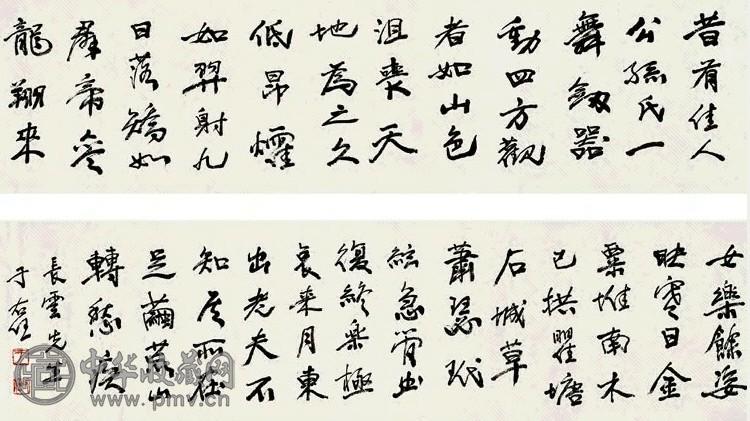 昔有佳人
公孫氏一
舞劍器
動四方觀
者如山色
沮喪天
地為之久
低昂㸌
如羿射九
日落矯如
羣帝參
龍翔來
女樂餘姿
映寒日金
粟堆南木
已拱瞿塘
石城草
蕭瑟玳
絃急管曲
復終樂極
哀來月東
出老夫不
知其所往
足繭荒山
轉愁疾
長雲先生
于右任
中华收藏网
www.pmv.cn